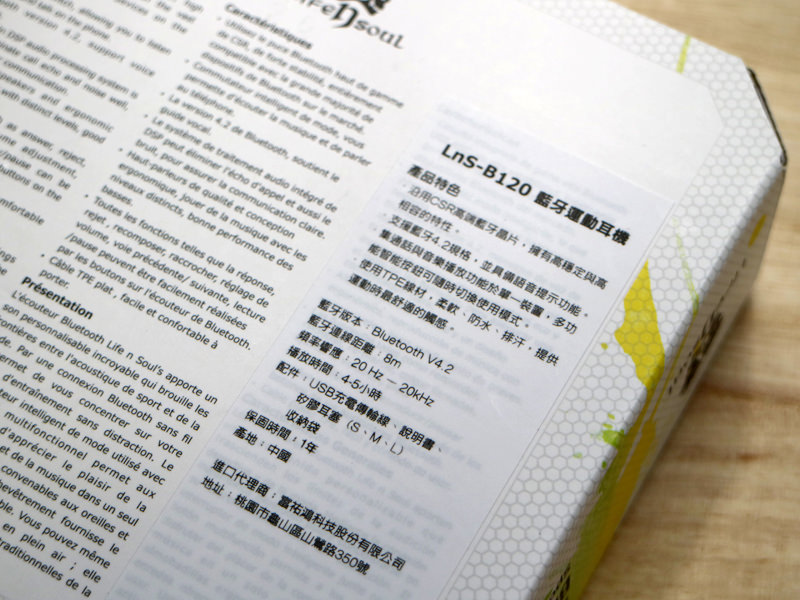 Life n soul
sting, allowing you to listen
and talk on the phone.
version 4.2, support voice
DSP audio processing system is
call echo and noise well,
communication.
speakers and ergonomic
with distinct levels, good
as answer, reject,
volume adjustment,
/pause can be
buttons on the
comfortable
Caractéristiques
• Utilisez la puce Bluetooth haut de gamme
de CSR, de forte stabilité, entièrement
compatible avec la grande majorité de
dispositifs de Bluetooth sur le marché.
• Commutateur intelligent de mode, vous
permette d'écouter la musique et de parler
au téléphone.
• La version 4.2 de Bluetooth, soutient le
guide vocal.
• Le système de traitement audio intégré de
DSP peut éliminer l'écho d'appel et aussi le
bruit, pour assurer la communication claire.
• Haut-parleurs de qualité et conception
ergonomique, jouer de la musique avec les
niveaux distincts, bonne performance des
basses.
• Toutes les fonctions telles que la réponse,
rejet, recomposer, raccrocher, réglage de
volume, voie précédente/ suivante, lecture
/pause peuvent être facilement réalisées
par les boutons sur l'écouteur de Bluetooth.
• Câble TPE plat, facile et confortable à
porter.
Présentation
L'écouteur Bluetooth Life n Soul's apporte un
son personnalisable incroyable qui brouille les
frontières entre l'acoustique de sport et de la
Par une connexion Bluetooth sans fil
permet de vous concentrer sur votre
d'entraînement sans distraction. Le
intelligent de mode utilisé avec
multifonctionnel permet aux
d'apprécier le plaisir de la
et de la musique dans un seul
convenables aux oreilles et
fournisse le
Vous pouvez même
en plein air ; elle
traditionnelles de la
LnS-B120 藍牙運動耳機
產品特色
· 沿用CSR高端藍牙晶片，擁有高穩定與高
相容的特性。
· 支援藍牙4.2規格，並具備語音提示功能。
· 集通話與音樂播放功能於單一裝置，多功
能智能按鈕可隨時切換使用模式。
· 使用TPE線材，柔軟、防水、排汗，提供
運動時最舒適的觸感。
藍牙版本：Bluetooth V4.2
藍牙連線距離：8m
頻率響應：20 Hz — 20kHz
播放時間：4-5小時
配件：USB充電傳輸線、說明書、
矽膠耳塞（S、M、L）
收納袋
保固時間，1年
產地：中國
進口代理商：富祐鴻科技股份有限公司
地址：桃園市龜山區山鶯路350號